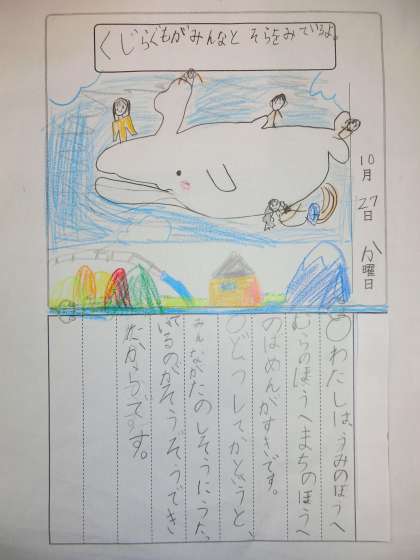 くじらぐもがみんなと そらをみているよ。
10月27日 火曜日
わたしは、うみのほうへ
むらのほうへまちのほうへ
のばめんがすきです。
どうしてかというと、
みんながたのしそうにうたっ
ているのがそうぞうでき
たからです。